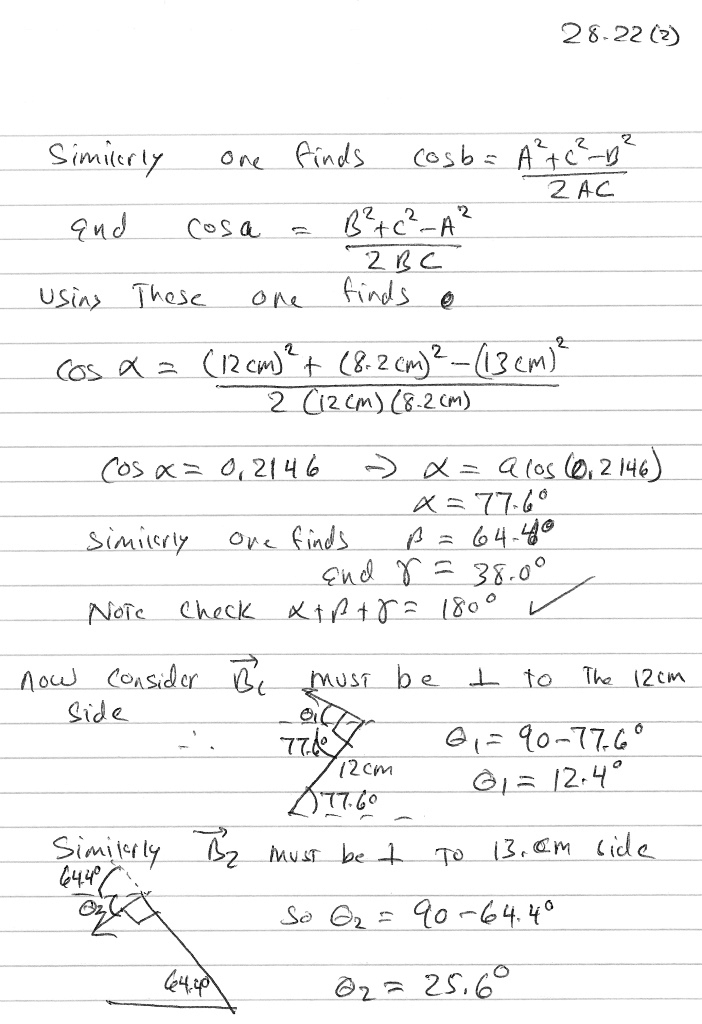 28.22(2)
Similarly one finds cos b = A²+C²-B² / 2AC
and cos a = B²+C²-A² / 2BC
Using These one finds
cos α = (12cm)² + (8.2cm)² - (13cm)² / 2(12cm)(8.2cm)
cos α = 0.2146 → α = acos(0.2146)
α = 77.6°
Similarly one finds β = 64.4°
and γ = 38.0°
Note check α+β+γ = 180° ✓
now consider B⃗₁ must be ⊥ to The 12cm
side
∴ θ₁ 77.6° 12cm 77.6°
θ₁ = 90-77.6°
θ₁ = 12.4°
Similarly B⃗₂ must be ⊥ To 13.cm side
64.4°
θ₂ So θ₂ = 90-64.4°
64.4° θ₂ = 25.6°